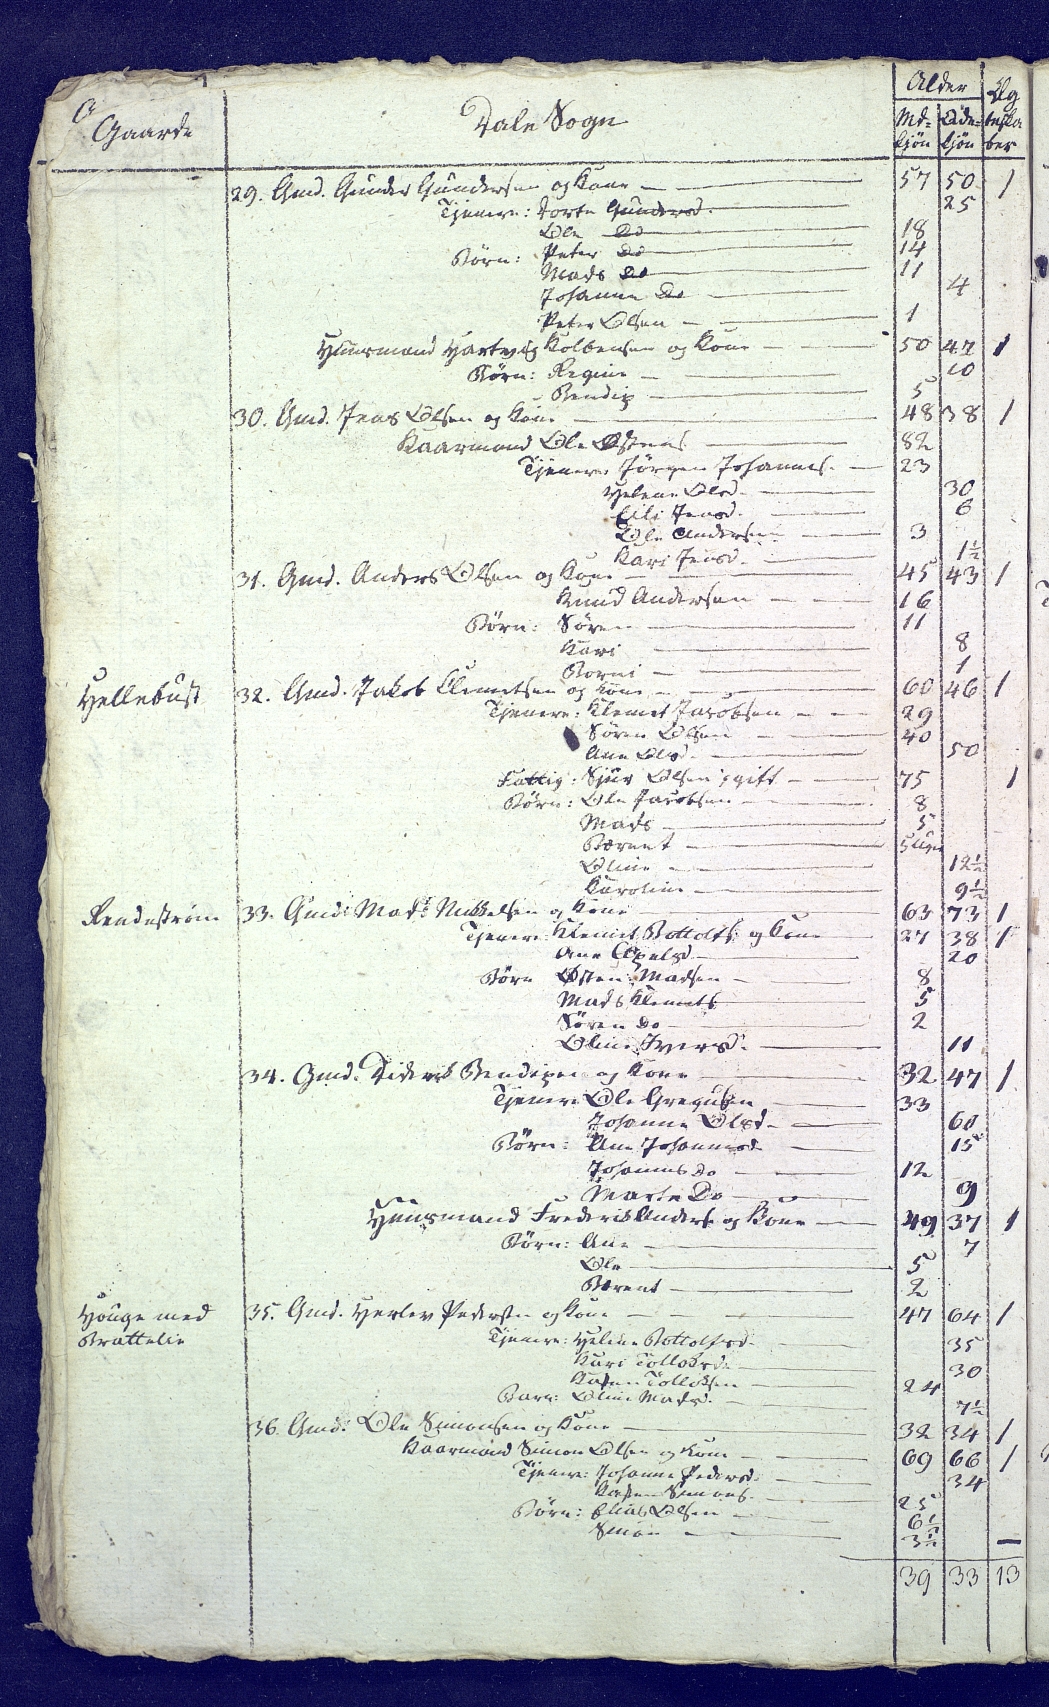 Gaarde Dale Sogn Alder Ægteskaber
Mdkjøn Qdekjøn
29. Gmd. Gunder Gundersen og Kone 57 50 1
Tjenere: Dorte Gundersd. 25
Ole Do 18
Børn: Peter Do 14
Mads Do 11
Johanne Do 4
Peter Olsen 1
Huusmand Hartvig Kolbensen og Kone 50 47 1
Børn: Regine 10
Bendix 5
30. Gmd. Jens Olsen og Kone 48 38 1
Kaarmand Ole Østens 82
Tjenere Jørgen Johannes. 23
Helene Olsd. 30
Eili Jensd. 6
Ole Andersen 3
Kari Jensd. 1½
31. Gmd. Anders Olsen og Kone 45 43 1
Knud Andersen 16
Børn: Søren 11
Kari 8
Borni 1
Hellebust 32. Gmd. Jakob Clemetsen og Kone 60 46 1
Tjenere: Klemet Jacobsen 29
Søren Olsen 40
Ane Olsd. 50
Fattig: Sjur Olsen, gift 75 1
Børn: Ole Jacobsen 8
Mads 5
Bernt 5 Uger
Oline 12½
Karoline 9½
Rendestrøm 33. Gmd: Mads Mikkelsen og Kone 63 73 1
Tjenere Klemet Bottolfs: og Kone 27 38 1
Ane Axelsd 20
Børn Østen Madsen 8
Mads Klemets 5
Søren Do 2
Oline Iversd. 11
34. Gmd. Diderik Bendixen og Kone 32 47 1
Tjenere Ole Gregusen 33
Johanne Olsd. 60
Børn: Ane Johannesd 15
Johannes Do 12
Marte Do 9
Huusmand Frederik Anders. og Kone 49 37 1
Børn: Ane 7
Ole 5
Bernt 2
Houge med 35. Gmd. Herlev Pedersen og Kone 47 64 1
Brattelie Tjenere: Helene Bottolfsd. 35
Kari Tolløfsd. 30
Tolløfsen 24
Barn: Oline Madsd. 7½
36. Gmd: Ole Simonsen og Kone 32 34 1
Kaarmand Simon Olsen og Kone 69 66 1
Tjenere: Johanne Pedersd. 34
Simons. 25
Børn: Elias Olsen 6½
Simon 3½
39 33 13